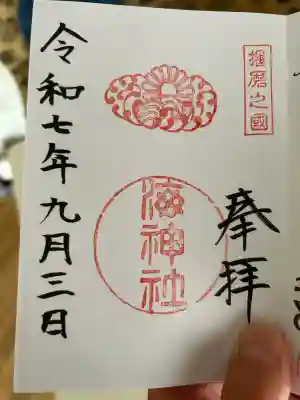 播磨之國
奉拝
海神社
令和七年九月三日